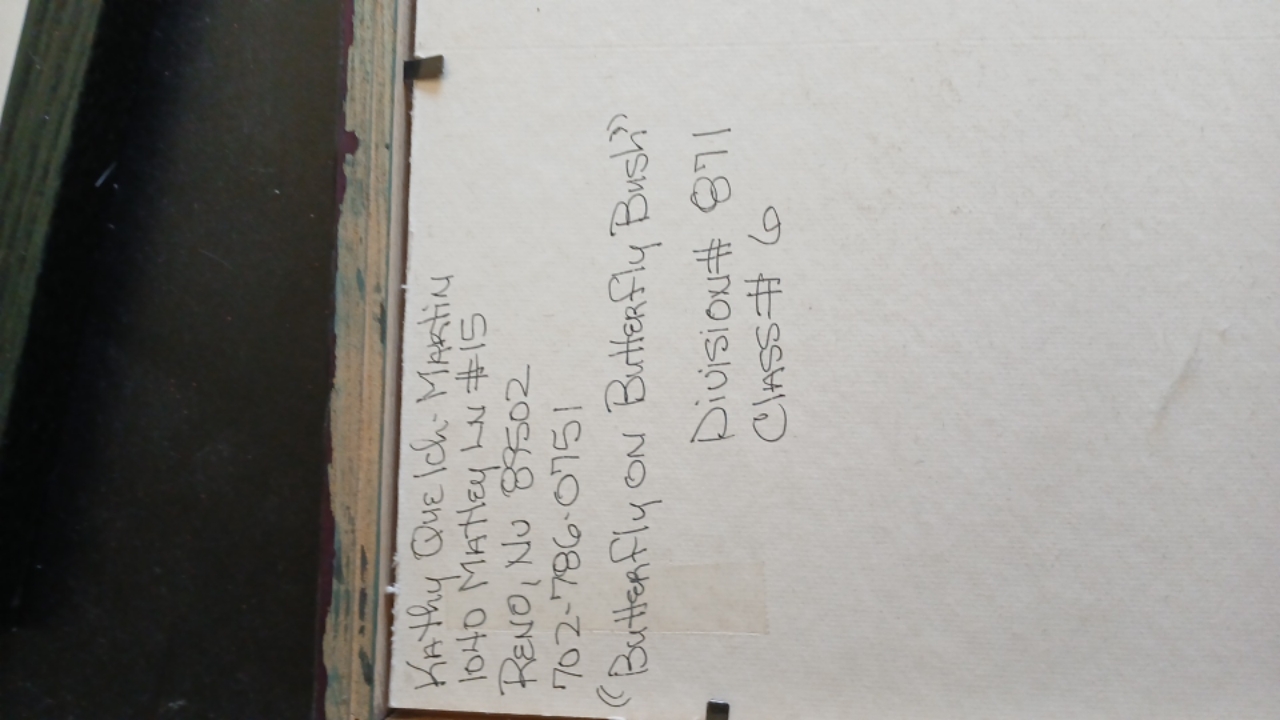 Kathy Quelch-Martin
1040 Matley Ln #15
Reno, Nv 89502
702-786-0751
"Butterfly on Butterfly Bush"
Division# 871
Class# 6